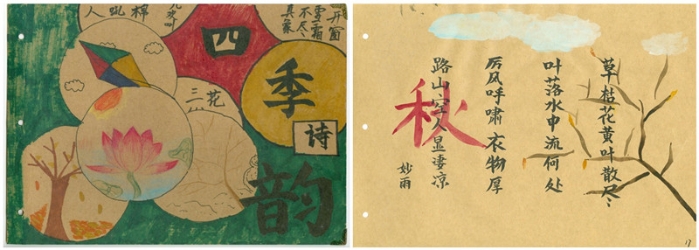 四
季
诗
韵
三花
开窗
草枯花黄叶散尽
叶落水中流何处
厉风呼啸衣物厚
路山空人显凄凉
秋
妙雨